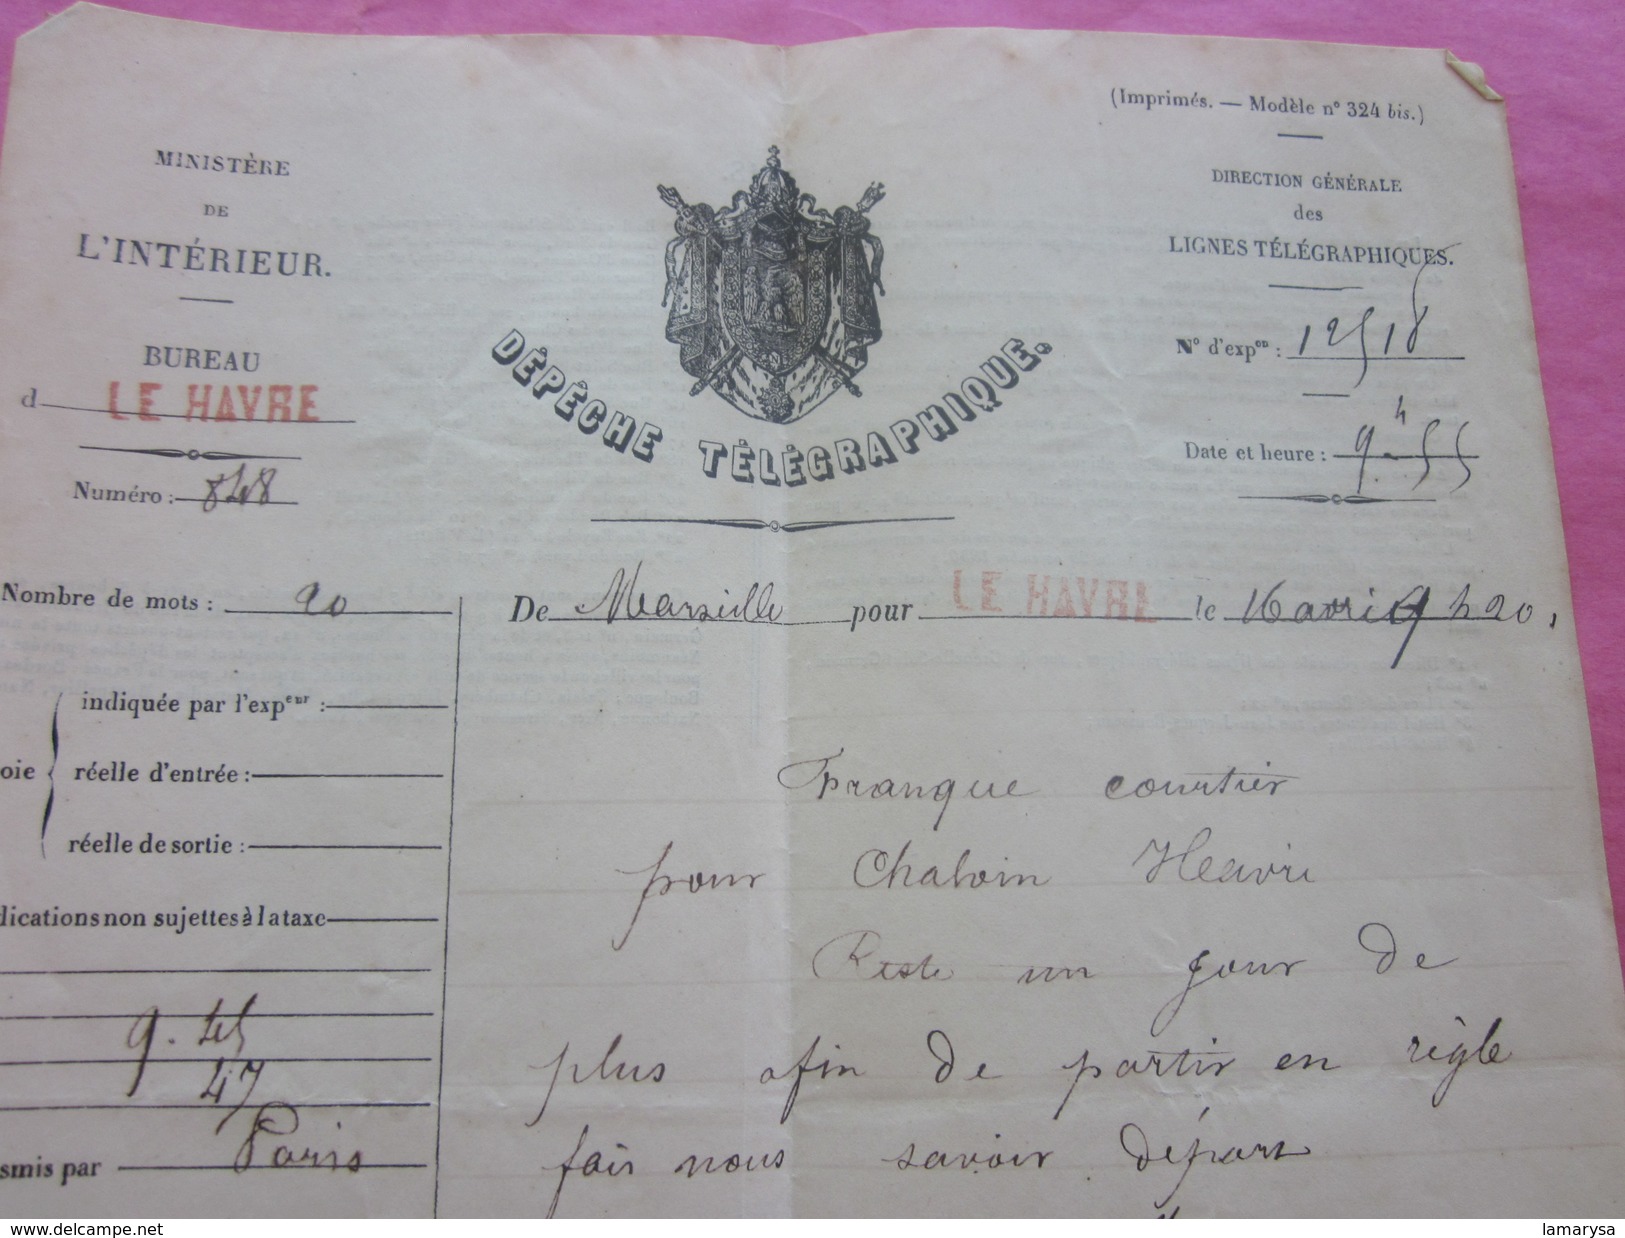 (Imprimés. — Modèle n° 324 bis.)
MINISTÈRE
DE
L'INTÉRIEUR.
BUREAU
d LE HAVRE
Numéro : 848
DÉPÊCHE TÉLÉGRAPHIQUE.
DIRECTION GÉNÉRALE
des
LIGNES TÉLÉGRAPHIQUES.
N° d'expon : 12518
Date et heure : 9h 55
Nombre de mots : 20
De Marseille pour LE HAVRE le 16 avril 9 h 20
oie
indiquée par l'expeur :
réelle d'entrée :
réelle de sortie :
dications non sujettes à la taxe
9. 45
47
smis par Paris
Franque courtier
pour Chalvin Heavre
Reste un jour de
plus afin de partir en règle
fais nous savoir départ
delcampe.net
lamarysa